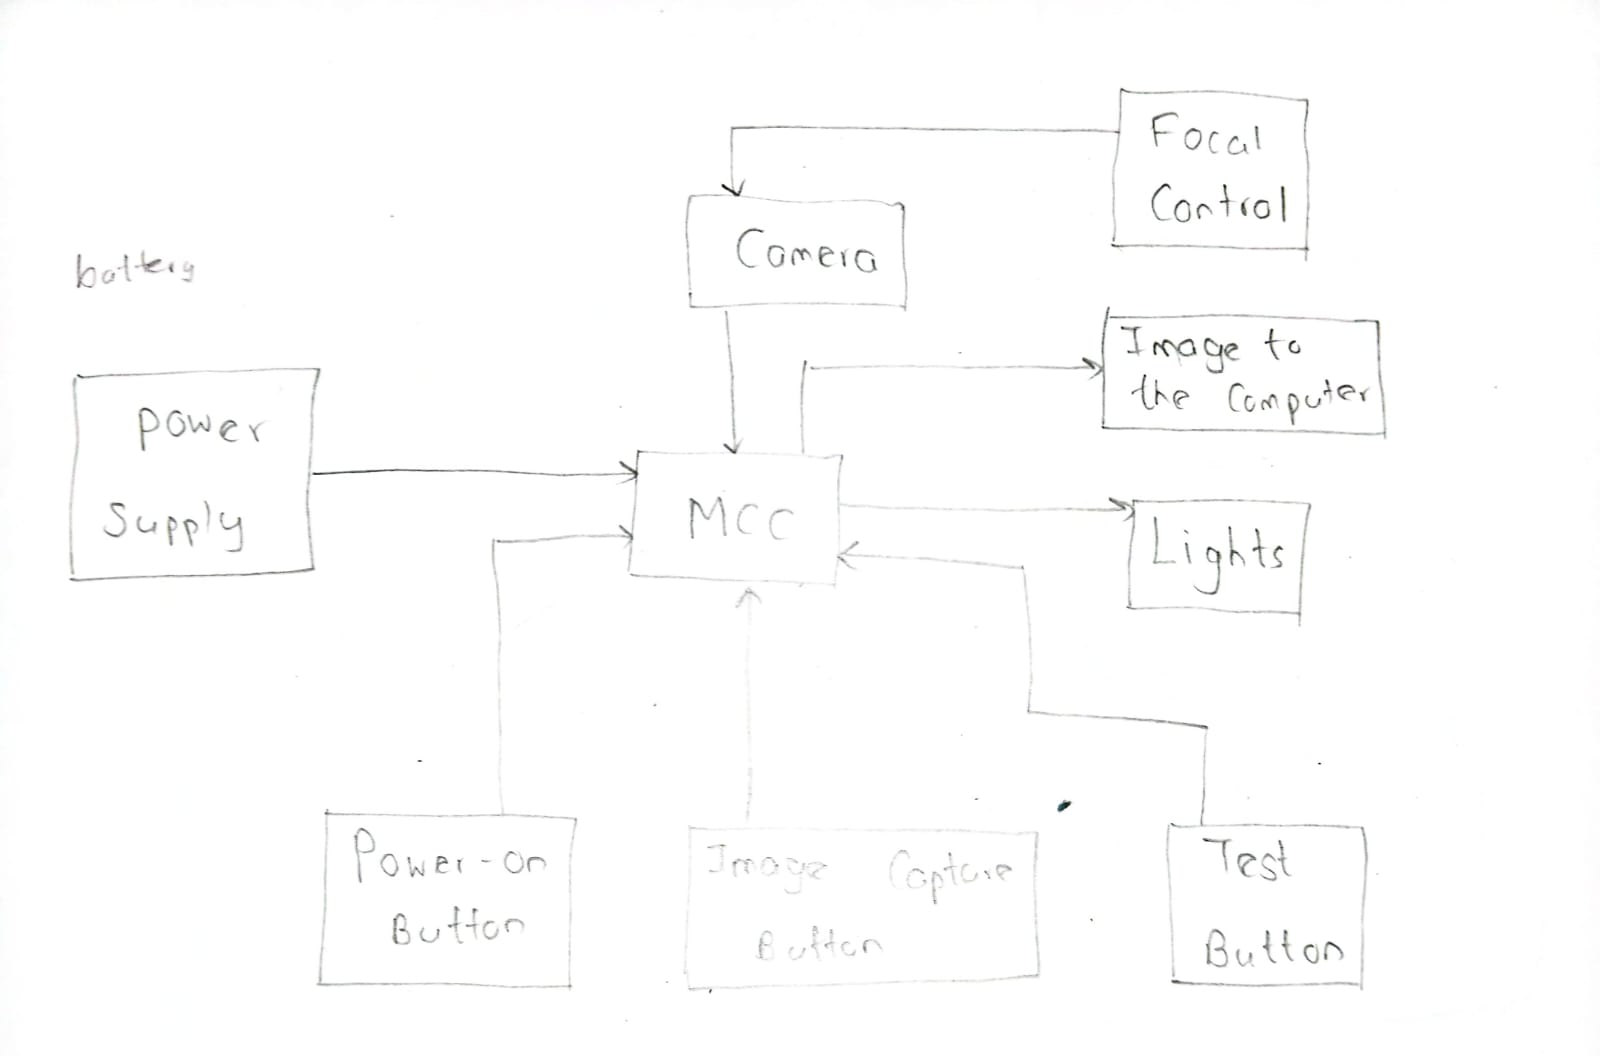 Focal
Control
Camera
battery
Image to
the Computer
Power
Supply
MCC
Lights
Power-on
Button
Image Capture
Button
Test
Button